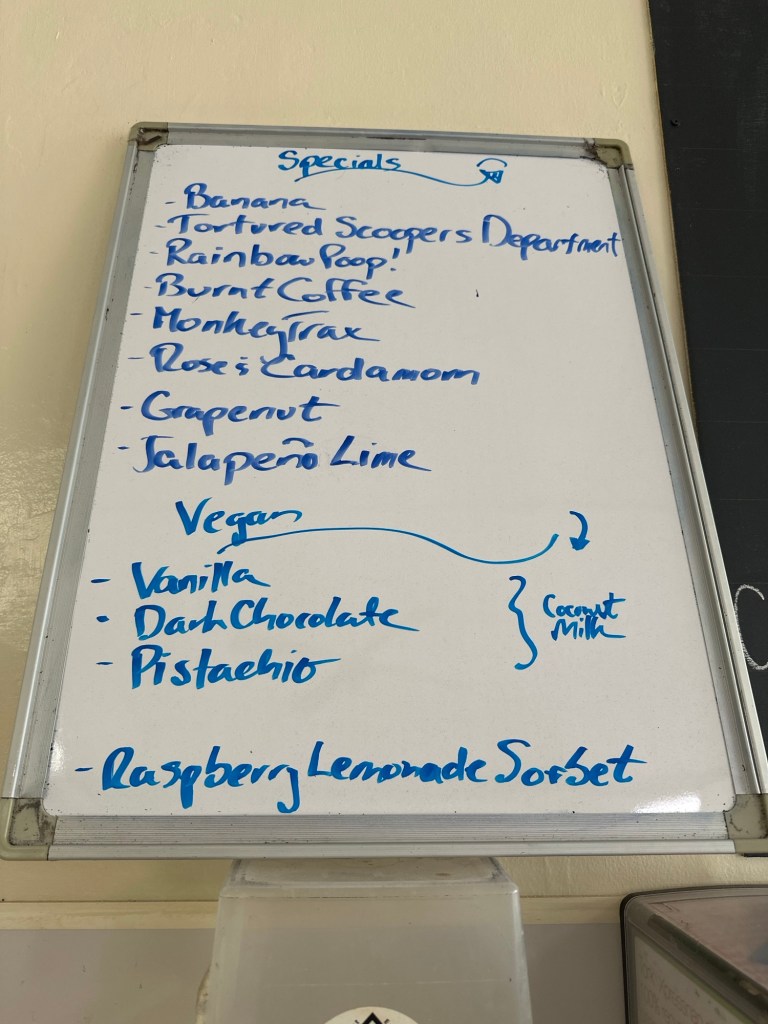 Specials
- Banana
- Tortured Scoopers Department
- Rainbow Poop!
- Burnt Coffee
- Monkey Trax
- Rose & Cardamom
- Grapenut
- Jalapeño Lime
Vegan
- Vanilla
- Dark Chocolate
- Pistachio
Coconut
Milk
- Raspberry Lemonade Sorbet